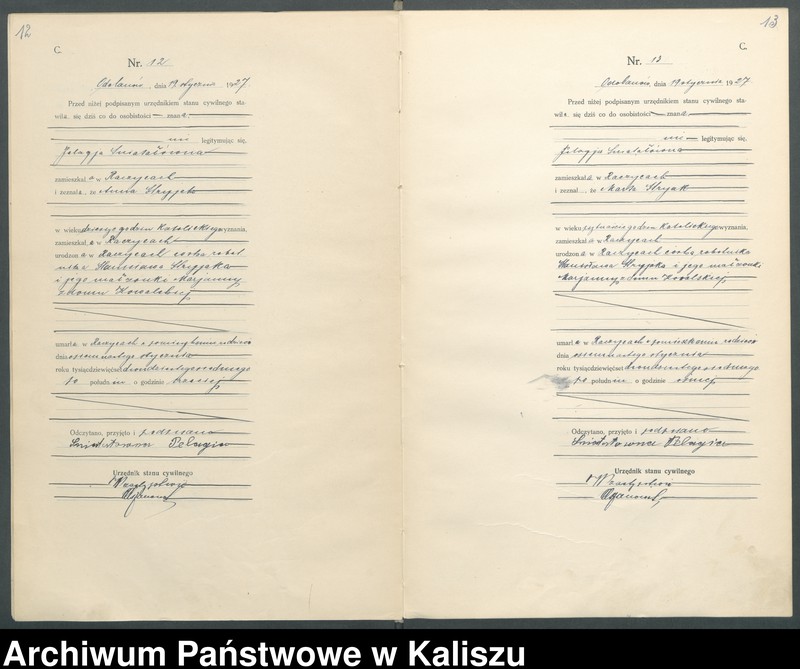 12
C.
Nr. 12
Odolanów, dnia 19 stycznia 1927
Przed niżej podpisanym urzędnikiem stanu cywilnego sta-
wiła się dziś co do osobistości — znana
mi legitymując się,
Pelagja
zamieszkała w Raczycach
i zeznała, że Anna
w wieku godzin Katolickiego wyznania,
zamieszkała w Raczycach
urodzona w Raczycach córka robot
nika Stanisława
i jego małżonki Marjanny
z domu Kowalskiej
umarła w Raczycach w
dnia osiemnastego stycznia
roku tysiącdziewięćset dwudziestego siódmego
po południu o godzinie trzeciej
Odczytano, przyjęto i podpisano
Pelagia
Urzędnik stanu cywilnego
13
C.
Nr. 13
Odolanów, dnia 19 stycznia 1927
Przed niżej podpisanym urzędnikiem stanu cywilnego sta-
wiła się dziś co do osobistości — znana
mi — legitymując się,
Pelagja
zamieszkała w Raczycach
i zeznał, że Marta
w wieku godzin Katolickiego wyznania,
zamieszkała w Raczycach
urodzona w Raczycach córka robotnika
Stanisława i jego małżonki
Marjanny z domu
umarła w Raczycach w
dnia osiemnastego stycznia
roku tysiącdziewięćset dwudziestego siódmego
po południu o godzinie ósmej
Odczytano, przyjęto i podpisano
Pelagia
Urzędnik stanu cywilnego
Archiwum Państwowe w Kaliszu